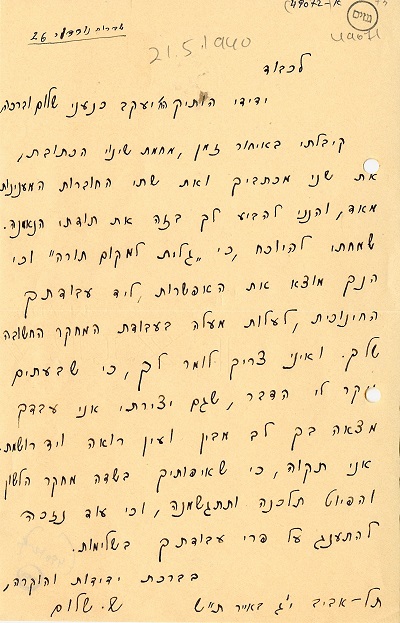 49072-א
49071
שדרות נורדוי 26
21.5.1940
לכבוד
ידידי הותיק ה' יעקב כנעני שלום וברכה
קיבלתי באיחור זמן, מחמת שינוי הכתובת,
את שני מכתביך ואת שתי החוברות המענינות
מאד, והנני להביע לך בזה את תודתי הנאמנה.
שמחתי להיוכח, כי "גלית למקום תורה" וכי
הנך מוצא את האפשרות, ליד עבודתך
החינוכית, לעלות מעלה בעבודת המחקר החשובה
שלך. ואיני צריך לומר לך, כי שבעתים
יקר לי הדבר, שגם יצירתי אני עבדך
מצאה בך לב מבין ועין רואה ויד רושמת.
אני תקוה, כי שאיפותיך בשדה מחקר הלשון
והפיוט תלכנה ותתגשמנה, וכי עוד נזכה
להתענג על פרי עבודתך בשלימות.
בברכת ידידות והוקרה,
תל-אביב י"ג באייר ת"ש
ש. שלום